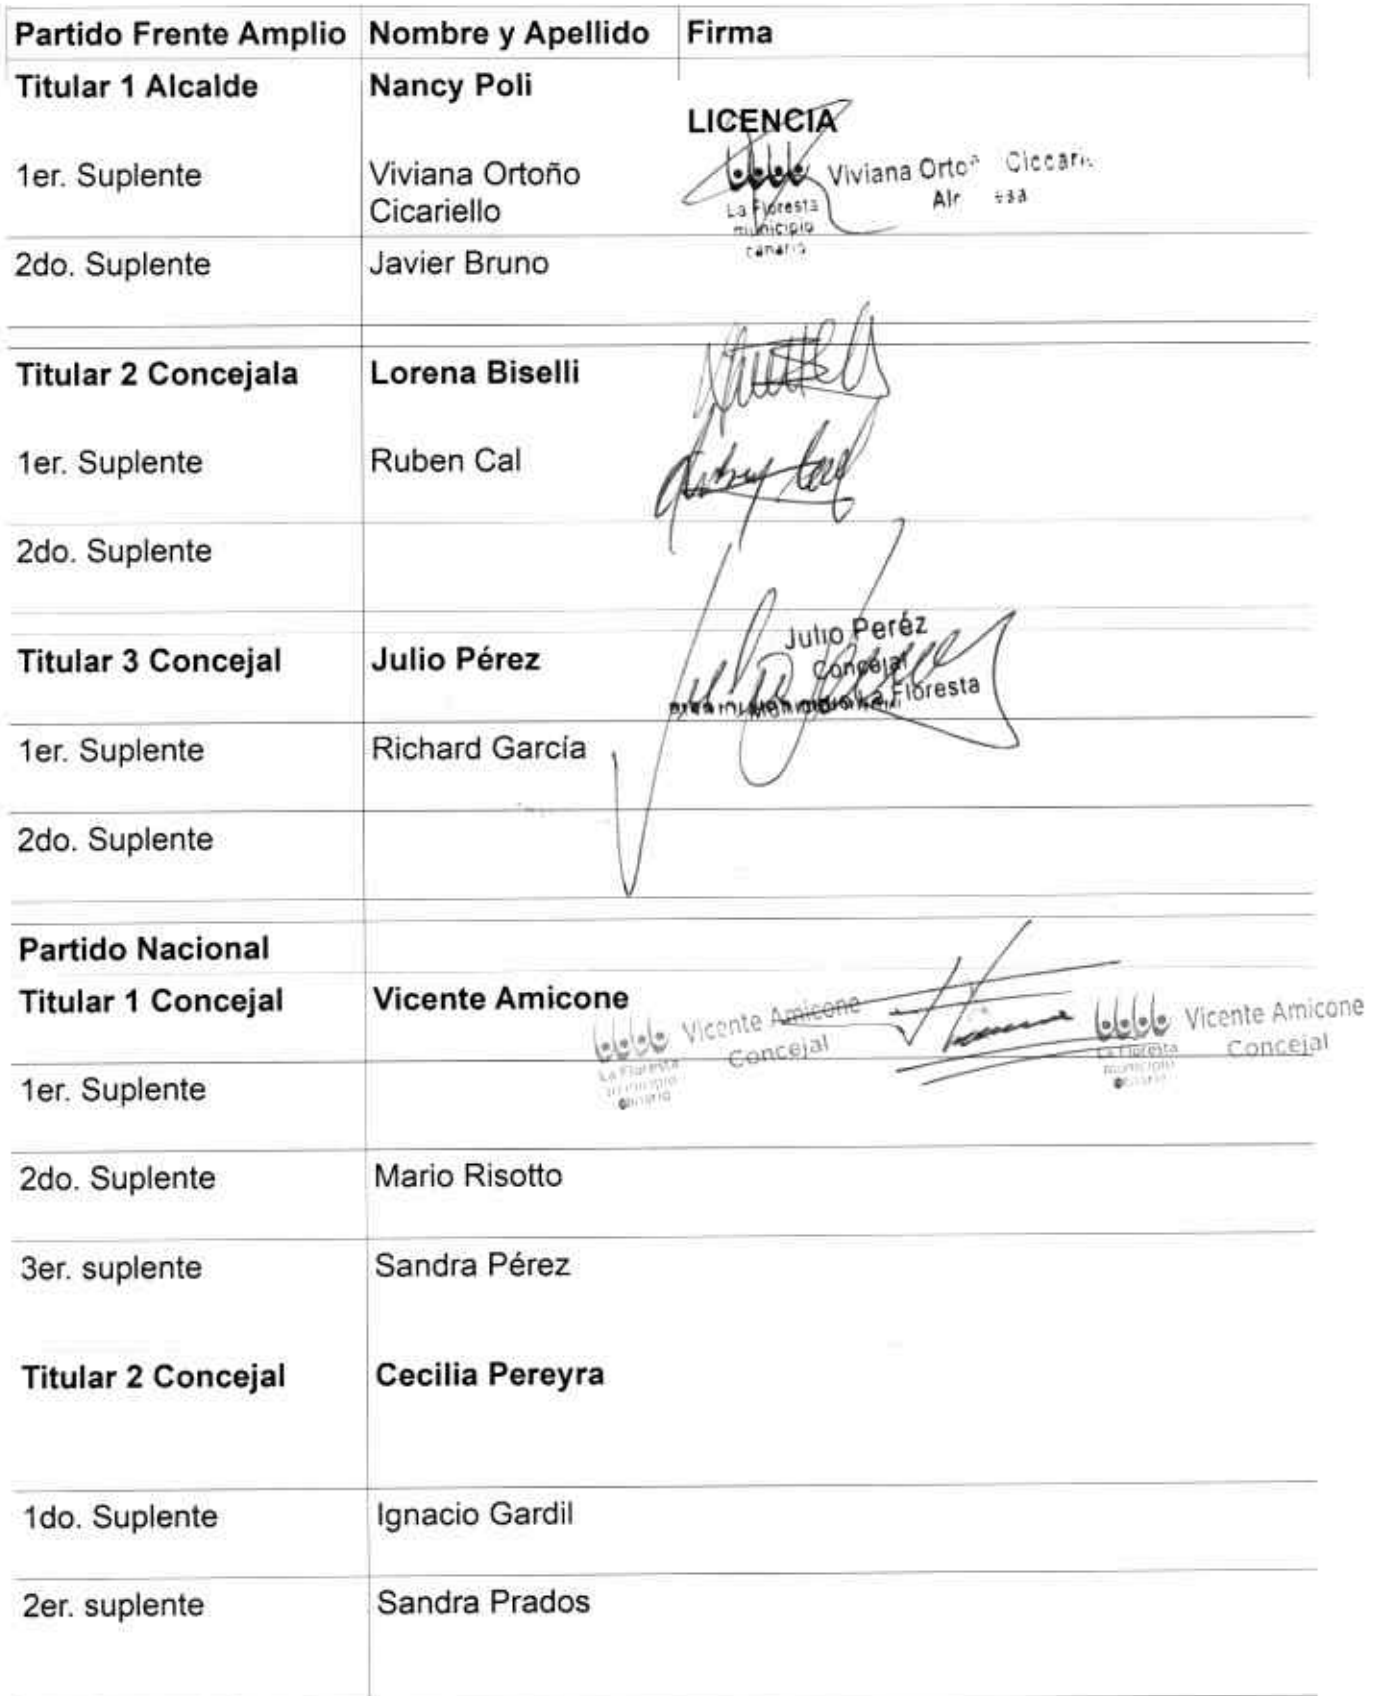 Partido Frente Amplio Nombre y Apellido Firma
Titular 1 Alcalde Nancy Poli
LICENCIA
1er. Suplente Viviana Ortoño
Cicariello
Viviana
La Floresta
municipio
canario
2do. Suplente Javier Bruno
Titular 2 Concejala Lorena Biselli
1er. Suplente Ruben Cal
2do. Suplente
Julio Peréz
Titular 3 Concejal Julio Pérez
Concejal
La Floresta
1er. Suplente Richard García
2do. Suplente
Partido Nacional
Titular 1 Concejal Vicente Amicone
Vicente Amicone
Concejal
La Floresta
municipio
canario
Vicente Amicone
Concejal
La Floresta
municipio
canario
1er. Suplente
2do. Suplente Mario Risotto
3er. suplente Sandra Pérez
Titular 2 Concejal Cecilia Pereyra
1do. Suplente Ignacio Gardil
2er. suplente Sandra Prados